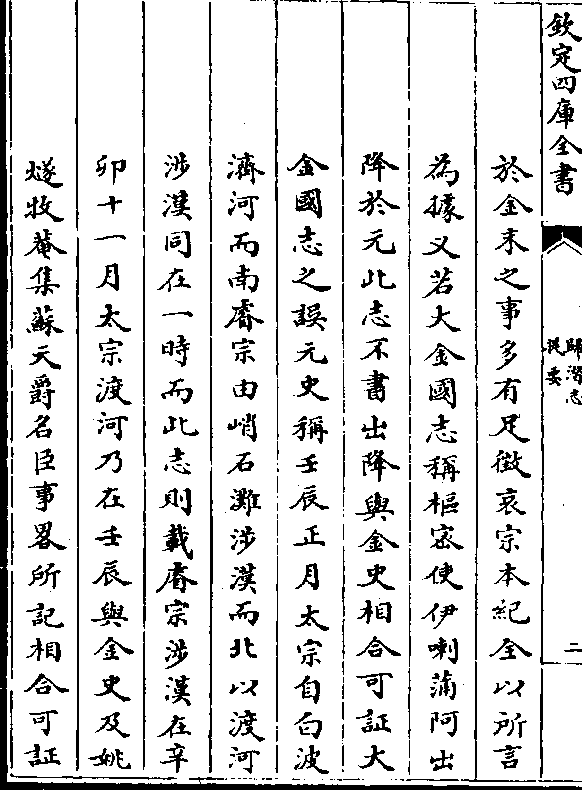 欽定四庫全書
歸潛志
提要
二
於金末之事多有足徵哀宗本紀全以所言
為據又若大金國志稱樞密使伊喇蒲阿出
降於元此志不書出降與金史相合可証大
金國志之誤元史稱壬辰正月太宗自白波
濟河而南睿宗由峭石灘涉漢而北以渡河
涉漢同在一時而此志則載睿宗涉漢在辛
卯十一月太宗渡河乃在壬辰與金史及姚
燧牧菴集蘇天爵名臣事畧所記相合可証